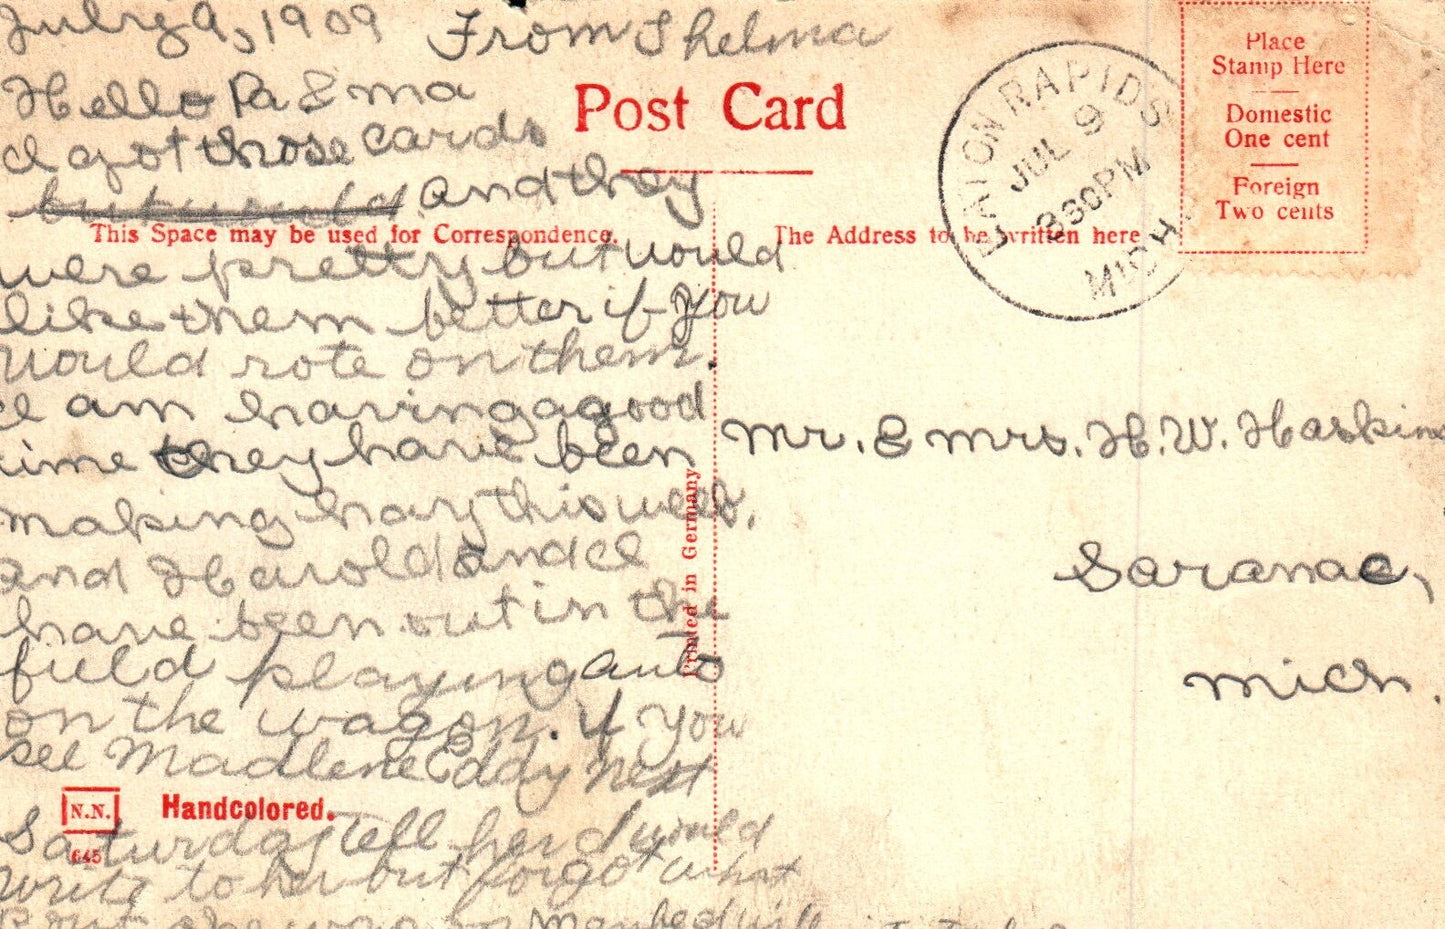 July 9, 1909 From Thelma
Hello Pa & ma
I got those cards
but would and they
were pretty but would
like them better if you
would rote on them.
I am having a good
time they have been
making hay this week,
and Harold and I
have been out in the
field playing auto
on the wagon. if you
see Madlene Eddy next
Saturday tell her I would
write to her but forgot what
she was on
Post Card
This Space may be used for Correspondence.
The Address to be written here
Place
Stamp Here
Domestic
One cent
Foreign
Two cents
EATON RAPIDS
JUL 9
830PM
MICH.
Mr. & Mrs. H. W. Haskins
Saranac,
Mich.
Printed in Germany
N.N.
Handcolored.
645